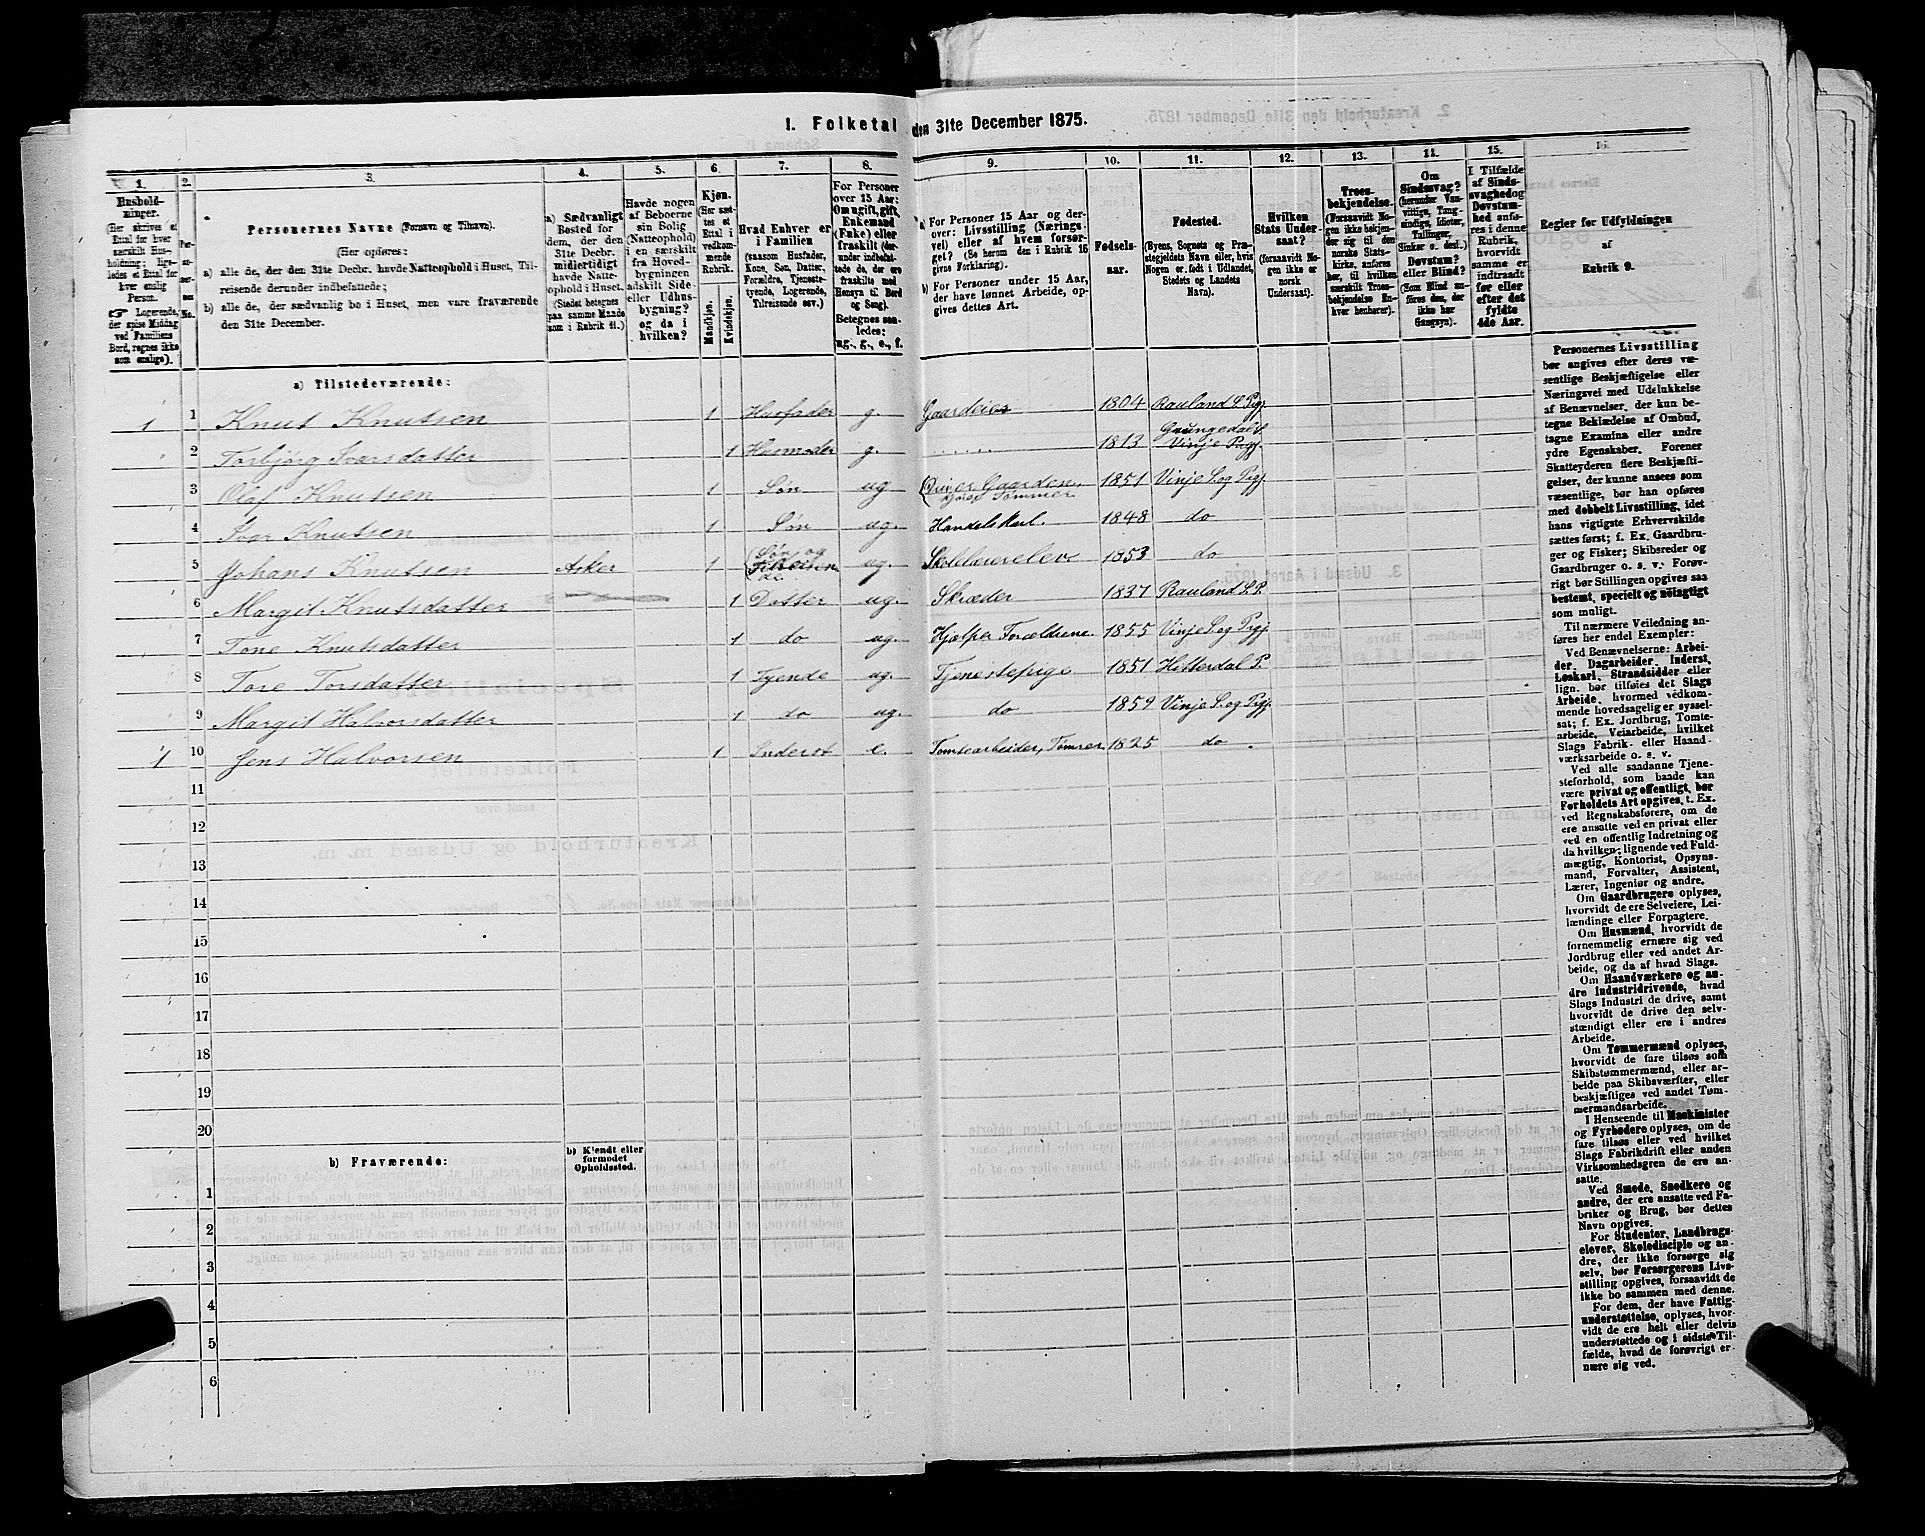 1. Folketal den 31te December 1875.
1.
2.
3.
4.
5.
6.
7.
8.
9.
10.
11.
12.
13.
14.
15.
16.
Hushold-
ninger.
(Her skrives et
Ettal for hver
særskilt Hus-
holdning; lige-
ledes et Ettal for
hver enslig
Person.
☞ Logerende,
der spise Middag
ved Familiens
Bord, regnes ikke
som enslige).
No.
Personernes Navne (Fornavn og Tilnavn).
(Her opføres:
a) alle de, der den 31te Decbr. havde Natteophold i Huset, Til-
reisende derunder indbefattede;
b) alle de, der sædvanlig bo i Huset, men vare fraværende
den 31te December.
a) Sædvanligt
Bosted for
dem, der den
31te Decbr.
midlertidigt
havde Natte-
ophold i Huset.
(Stedet betegnes
paa samme Maade
som i Rubrik 11.)
Havde nogen
af Beboerne
sin Bolig
(Natteophold)
i en særskilt
fra Hoved-
bygningen
adskilt Side-
eller Udhus-
bygning?
og da i
hvilken?
Kjøn.
(Her sæt-
tes et
Ettal i
vedkom-
mende
Rubrik.
Mandkjøn.
Kvindekjøn.
Hvad Enhver er
i Familien
(saasom Husfader,
Kone, Søn, Datter,
Forældre, Tjeneste-
tyende, Logerende,
Tilreisende osv.)
For Personer
over 15 Aar:
Om ugift, gift,
Enkemand
(Enke) eller
fraskilt (der-
under indbefat-
tede de, der ere
fraskilte med
Hensyn til Bord
og Seng).
Betegnes saa-
ledes:
ug., g., e., f.
a) For Personer 15 Aar og der-
over: Livsstilling (Nærings-
vei) eller af hvem forsør-
get? (Se herom den i Rubrik 16
givne Forklaring).
b) For Personer under 15 Aar,
der have lønnet Arbeide, op-
gives dettes Art.
Fødsels-
aar.
Fødested.
(Byens, Sognets og Præ-
stegjeldets Navn eller, hvis
Nogen er født i Udlandet,
Stedets og Landets
Navn).
Hvilken
Stats Under-
saat?
(forsaavidt No-
gen ikke er
norsk
Undersaat).
Troes-
bekjendelse.
(Forsaavidt No-
gen ikke bekjen-
der sig til den
norske Stats-
kirke, anføres
her, til hvilken
særskilt Troes-
bekjendelse En-
hver henhører).
Om
Sindssvag?
(herunder Van-
vittige, Tung-
sindige, Idioter,
Tullinger,
Sinker o. desl.)
Døvstum?
eller Blind?
(Som Blind an-
føres den, der
ikke har
Gangsyn).
I Tilfælde
af Sinds-
svaghed og
Døvstum-
hed anfø-
res i denne
Rubrik,
hvorvidt
samme er
indtraadt
før eller
efter det
fyldte
4de Aar.
Regler for Udfyldningen
af
Rubrik 9.
a) Tilstedeværende:
1 1 Knut Knutsen 1 Husfader g. Gaardeier 1804 Rauland S. Pgj.
2 Torbjørg Ivarsdatter 1 Husmoder g. 1813 Grungedal S. Vinje Prgj.
3 Olaf Knutsen 1 Søn ug Gaarden, Tømmer 1851 Vinje S. og Prgj.
4 Ivar Knutsen 1 Søn ug. Handelskarl. 1848 do
5 Johans Knutsen Asker 1 Søn og ug. Skolelærerelev 1853 do
6 Margit Knutsdatter 1 Datter ug. Skræder 1837 Rauland S. P.
7 Tone Knutsdatter 1 do ug. Hjælper Forældrene 1855 Vinje S. og Prgj.
8 Tore Torsdatter 1 Tyende ug. Tjenestepige 1851 Hitterdal P.
9 Margit Halvorsdatter 1 do ug. do 1859 Vinje S. og Prgj.
1 10 Jens Halvorsen 1 Inderst e. Tomtearbeider, Tømrer 1825 do
11
12
13
14
15
16
17
18
19
20
b) Fraværende:
b) Kjendt eller
formodet
Opholdssted.
1
2
3
4
5
6
Personernes Livsstilling
bør angives efter deres væ-
sentlige Beskjæftigelse eller
Næringsvei med Udelukkelse
af Benævnelser, der kun be-
tegne Beklædelse af Ombud,
tagne Examina eller andre
ydre Egenskaber. Forener
Skatteyderen flere Beskjæfti-
gelser, der kunne ansees som
væsentlige, bør han opføres
med dobbelt Livsstilling, idet
hans vigtigste Erhvervskilde
sættes først; f. Ex. Gaardbru-
ger og Fisker; Skibsreder og
Gaardbruger o. s. v. Forøv-
rigt bør Stillingen opgives saa
bestemt, specielt og nøiagtigt
som muligt.
Til nærmere Veiledning an-
føres her endel Exempler:
Ved Benævnelserne: Arbei-
der, Dagarbeider, Inderst,
Løskarl, Strandsidder eller
lign. bør tilføies det Slags
Arbeide, hvormed vedkom-
mende hovedsagelig er syssel-
sat; f. Ex. Jordbrug, Tomte-
arbeide, Veiarbeide, hvilket
Slags Fabrik- eller Haand-
værksarbeide o. s. v.
Ved alle saadanne Tjene-
steforhold, som baade kan
være privat og offentligt, bør
Forholdets Art opgives, t. Ex.
ved Regnskabsførere, om de
ere ansatte ved en privat eller
ved en offentlig Indretning og
da hvilken; lignende ved Fuld-
mægtig, Kontorist, Opsyns-
mand, Forvalter, Assistent,
Lærer, Ingeniør og andre.
Om Gaardbrugere oplyses,
hvorvidt de ere Selveiere, Lei-
lændinge eller Forpagtere.
Om Husmænd, hvorvidt de
fornemmelig ernære sig ved
Jordbrug eller ved andet Ar-
beide, og da af hvad Slags.
Om Haandværkere og an-
dre Industridrivende, hvad
Slags Industri de drive, samt
hvorvidt de drive den selv-
stændigt eller ere i andres
Arbeide.
Om Tømmermænd oplyses,
hvorvidt de fare tilsøs som
Skibstømmermænd, eller ar-
beide paa Skibsværfter, eller
beskjæftiges ved andet Tøm-
mermandsarbeide.
I Henseende til Maskinister
og Fyrbødere oplyses, om de
fare tilsøs eller ved hvilket
Slags Fabrikdrift eller anden
Virksomhedsgren de ere an-
satte.
Ved Smede, Snedkere og
andre, der ere ansatte ved Fa-
briker og Brug, bør dettes
Navn opgives.
For Studenter, Landbrugs-
elever, Skoledisciple og an-
dre, der ikke forsørge sig
selv, bør Forsørgerens Livs-
stilling opgives, forsaavidt de
ikke bo sammen med denne.
For dem, der have Fattig-
understøttelse, oplyses, hvor-
vidt de ere helt eller delvis
understøttede og i sidste Til-
fælde, hvad de forøvrigt er-
nære sig ved.